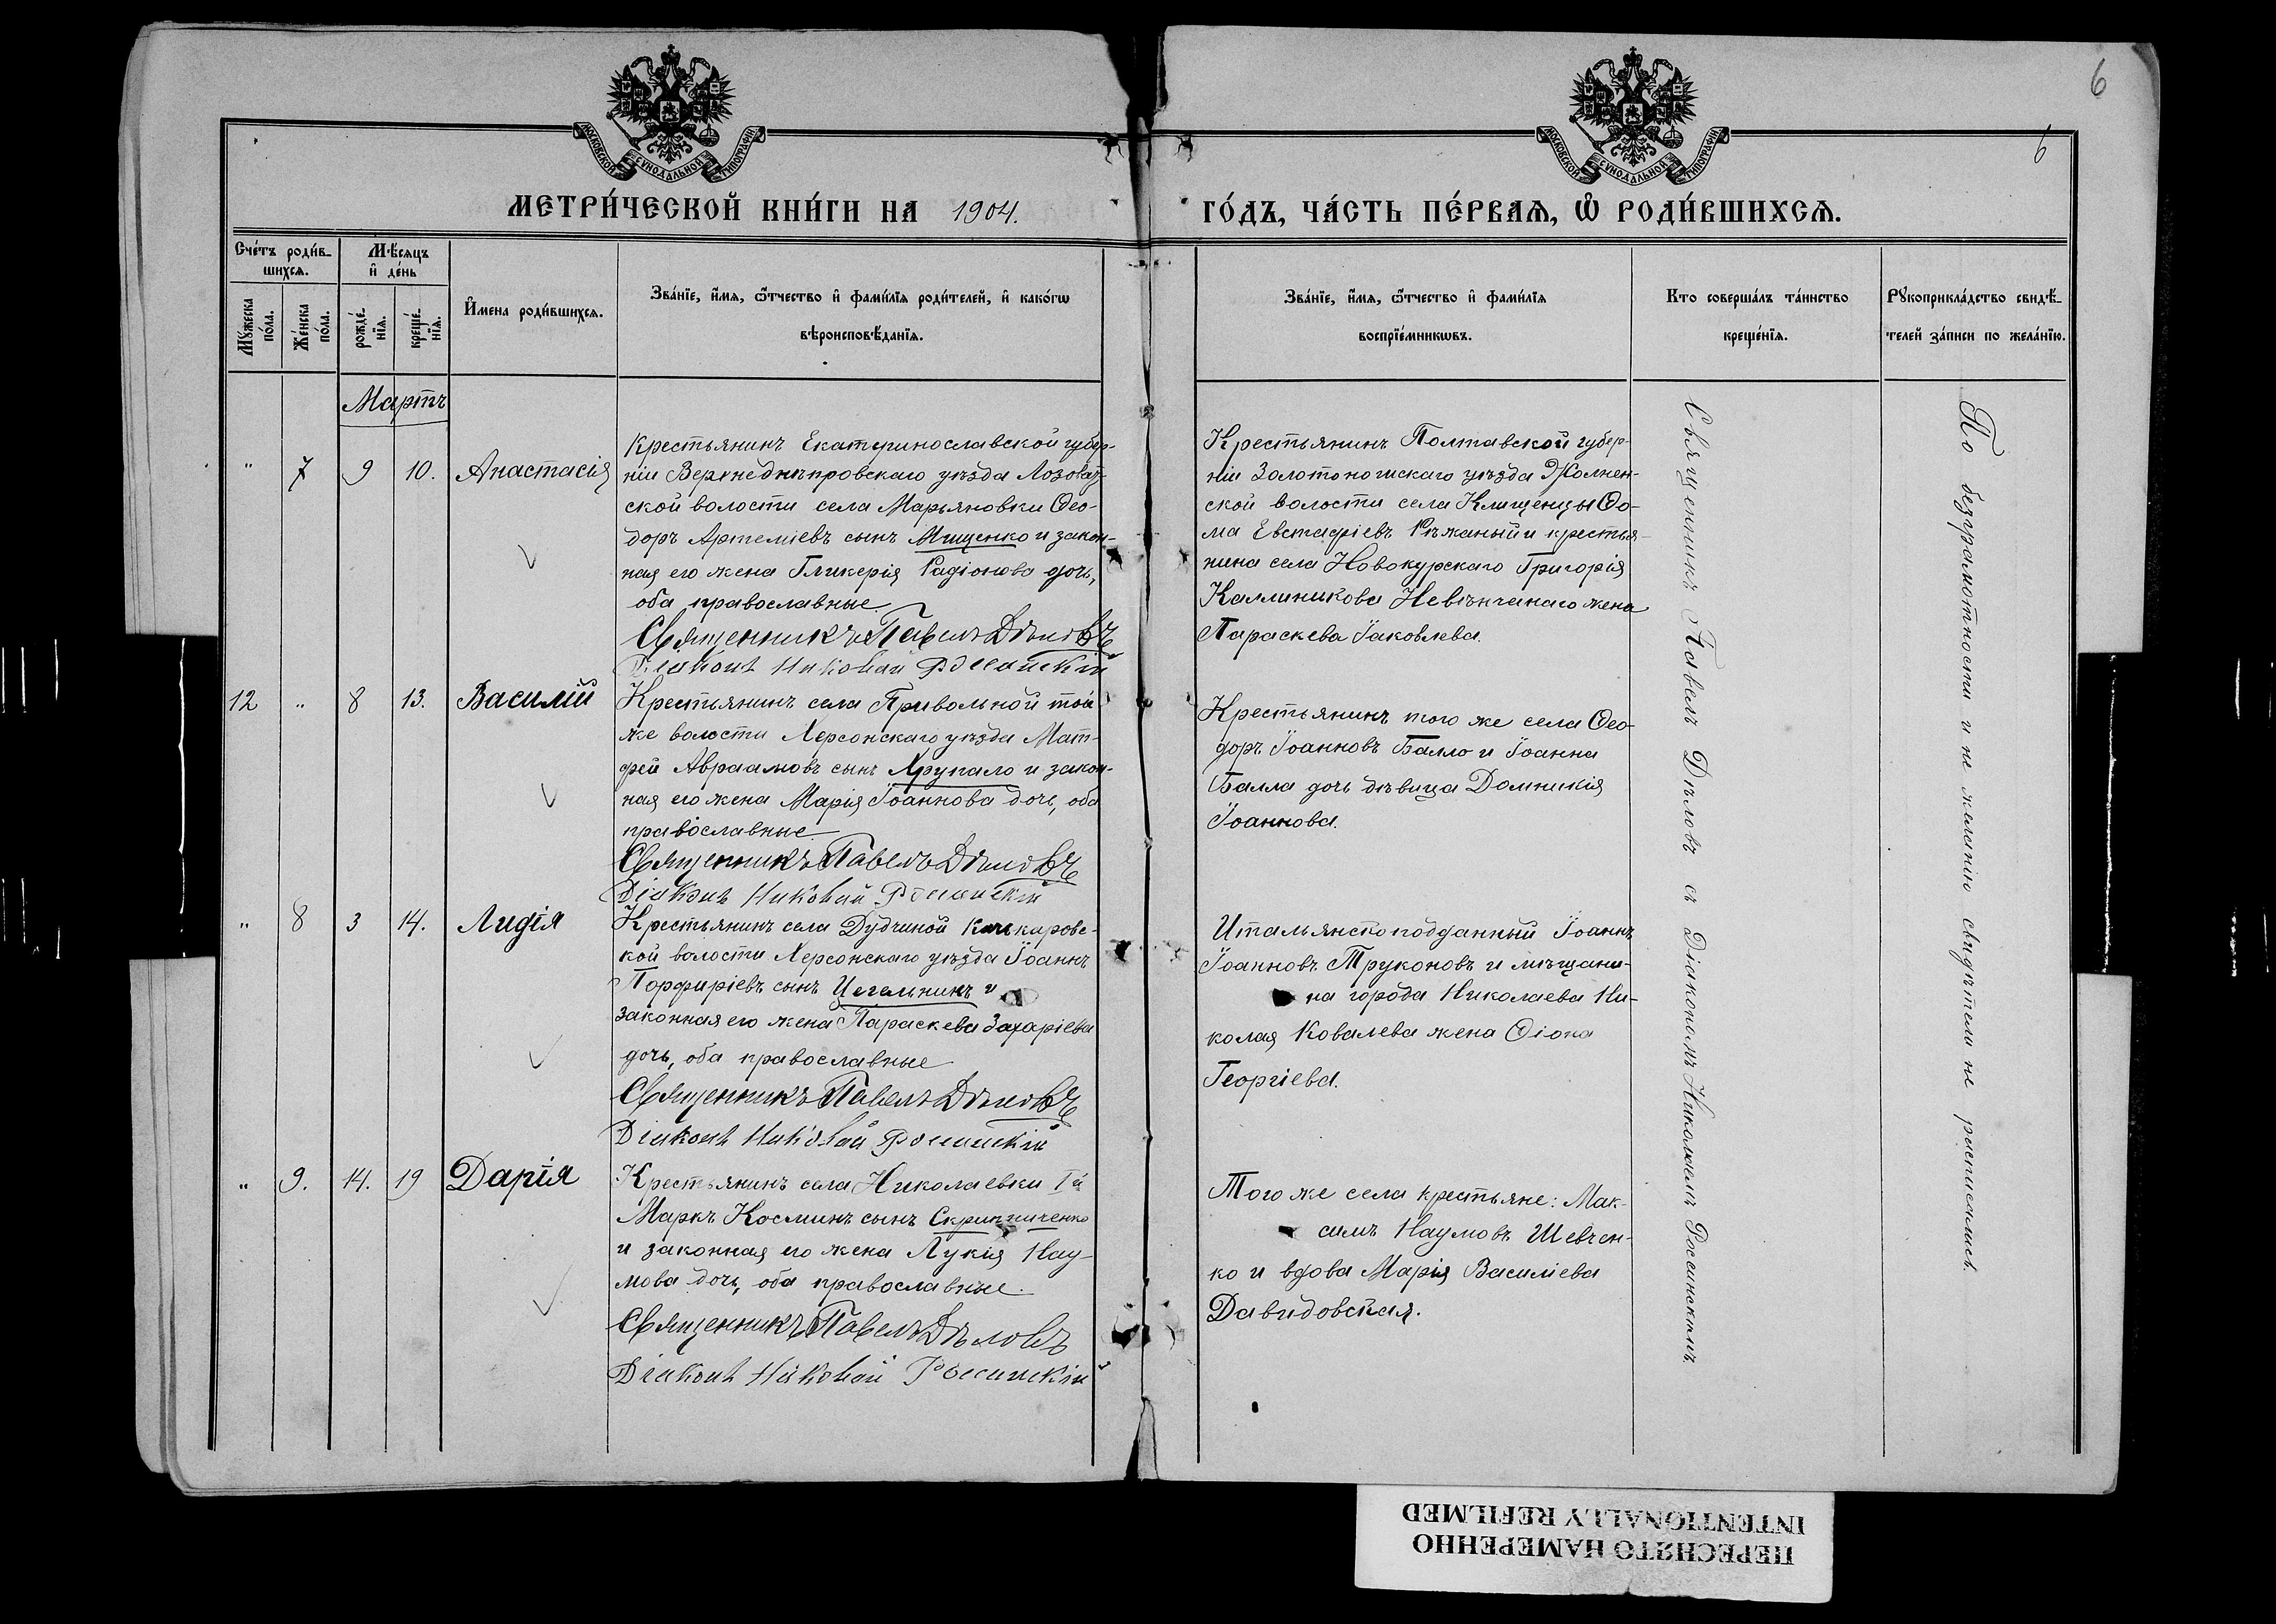 6
6
МОСКОВСКОЙ СѴНОДАЛЬНОЙ ТИПОГРАФІИ
МОСКОВСКОЙ СѴНОДАЛЬНОЙ ТИПОГРАФІИ
МЕТРИ́ЧЕСКОЙ КНИ́ГИ НА 1904.
ГО́ДЪ, ЧА́СТЬ ПЕ́РВАѦ, Ѽ РОДИ́ВШИХСѦ.
Сче́тъ роди́в-
шихсѧ.
Мꙋ́жеска
по́ла.
Же́нска
по́ла.
Мѣ́сѧцъ
и҆ де́нь
рожде́-
нїѧ.
креще́-
нїѧ.
И҆́мена роди́вшихсѧ.
Зва́нїе, и҆́мѧ, ѻ҆́тчество и҆ фами́лїѧ роди́телей, и҆ како́гѡ
вѣроисповѣ́данїѧ.
Зва́нїе, и҆́мѧ, ѻ҆́тчество и҆ фами́лїѧ
воспрїе́мникѡвъ.
Кто соверша́лъ та́инство
креще́нїѧ.
Рꙋкоприкла́дство свидѣ́-
телей за́писи по жела́нїю.
Мартъ
" 7 9 10. Анастасія
Крестьянинъ Екатеринославской губер-
ніи Верхнеднѣпровскаго уѣзда Лозоват-
ской волости села Марьяновки Ѳео-
доръ Артеміевъ сынъ Мищенко и закон-
ная его жена Гликерія Радіонова дочь,
оба православные.
Священникъ Павелъ Дѣловъ
Діаконъ Николай Россинскій
Крестьянинъ Полтавской губер-
ніи Золотоношскаго уѣзда Жолнен-
ской волости села Клищенцы Ѳо-
ма Евстафіевъ Рѣжаный и крестья-
нина села Новокурскаго Григорія
Каллиникова Невінчанаго жена
Параскева Іаковлева.
12 " 8 13. Василій
Крестьянинъ села Привольной той
же волости Херсонскаго уѣзда Мат-
фей Авраамовъ сынъ Хрупало и закон-
ная его жена Марія Іоаннова дочь, оба
православные.
Священникъ Павелъ Дѣловъ
Діаконъ Николай Россинскій
Крестьянинъ того же села Ѳео-
доръ Іоанновъ Балло и Іоанна
Балла дочь дѣвица Домникія
Іоаннова.
" 8 3 14. Лидія
Крестьянинъ села Дудчиной Качкаровс-
кой волости Херсонскаго уѣзда Іоаннъ
Порфиріевъ сынъ Цегельникъ и
законная его жена Параскева Захаріева
дочь, оба православные
Священникъ Павелъ Дѣловъ
Діаконъ Николай Россинскій
Итальянскоподданный Іоаннъ
Іоанновъ Труконовъ и мѣщани-
на города Николаева Ни-
колая Ковалева жена Ѳіона
Георгіева.
" 9. 14. 19 Дарія
Крестьянинъ села Николаевки Iй
Маркъ Косминъ сынъ Скрипниченко
и законная его жена Лукія Нау-
мова дочь, оба православные.
Священникъ Павелъ Дѣловъ
Діаконъ Николай Россинскій
Того же села крестьяне: Мак-
симъ Наумовъ Шевчен-
ко и вдова Марія Василіева
Давидовская.
Священникъ Павелъ Дѣловъ съ Діакономъ Николаемъ Россинскимъ.
По безграмотности и не желанію свидѣтели не расписались.
ПЕРЕСНЯТО НАМЕРЕННО
INTENTIONALLY REFILMED